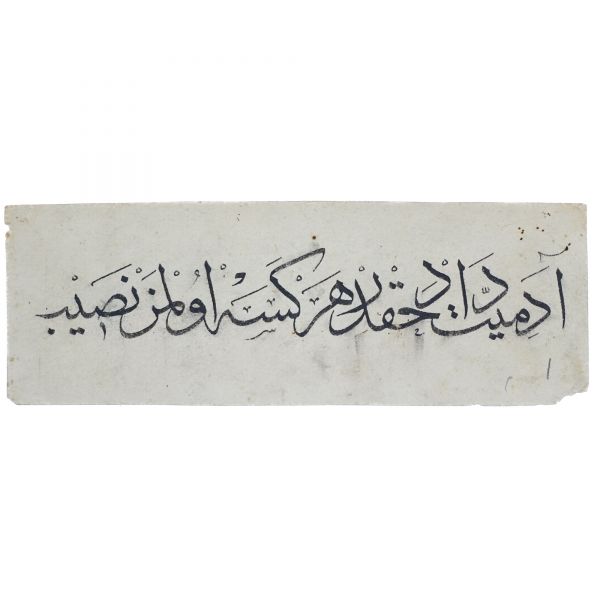 آدمیت داد حقدر هر كسه اولمز نصیب